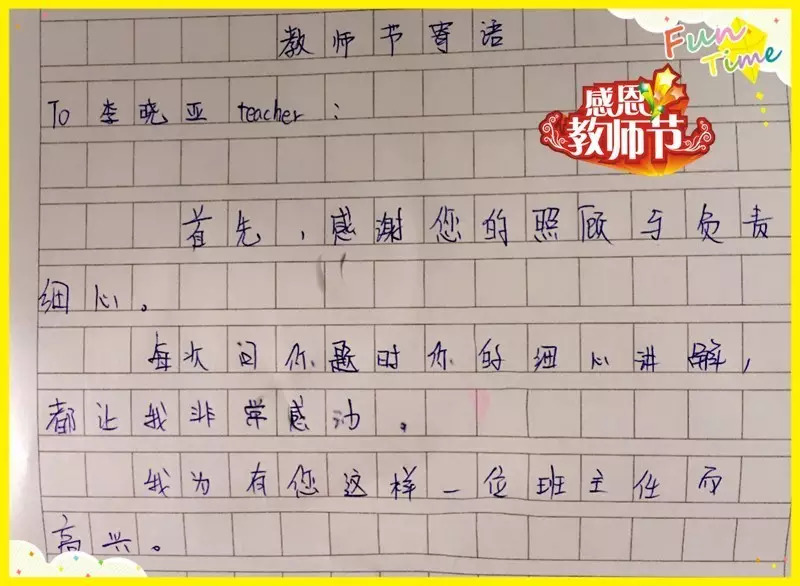 Fun Time
教师节寄语
感恩
教师节
To 李晓亚 teacher：
首先，感谢您的照顾与负责
细心。
每次问你题时你的细心讲解，
都让我非常感动。
我为有您这样一位班主任而
高兴。